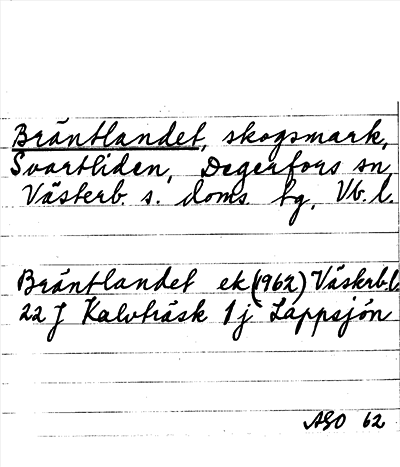 Bräntlandet, skogsmark,
Svartliden, Degerfors sn
Västerb. s. doms. tg, Vb. l.
Bräntlandet ek (1962) Västerb. l.
22 J Kalvträsk 1 j Lappsjön
ASO 62